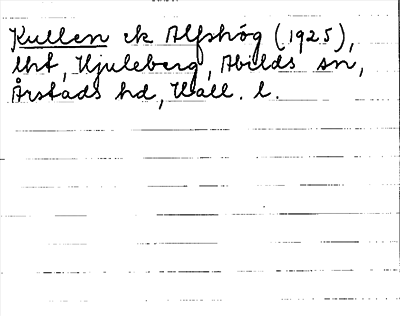 Kullen ek Alfshög (1925),
lht, Hjuleberg, Abilds sn,
Årstads hd, Hall. l.